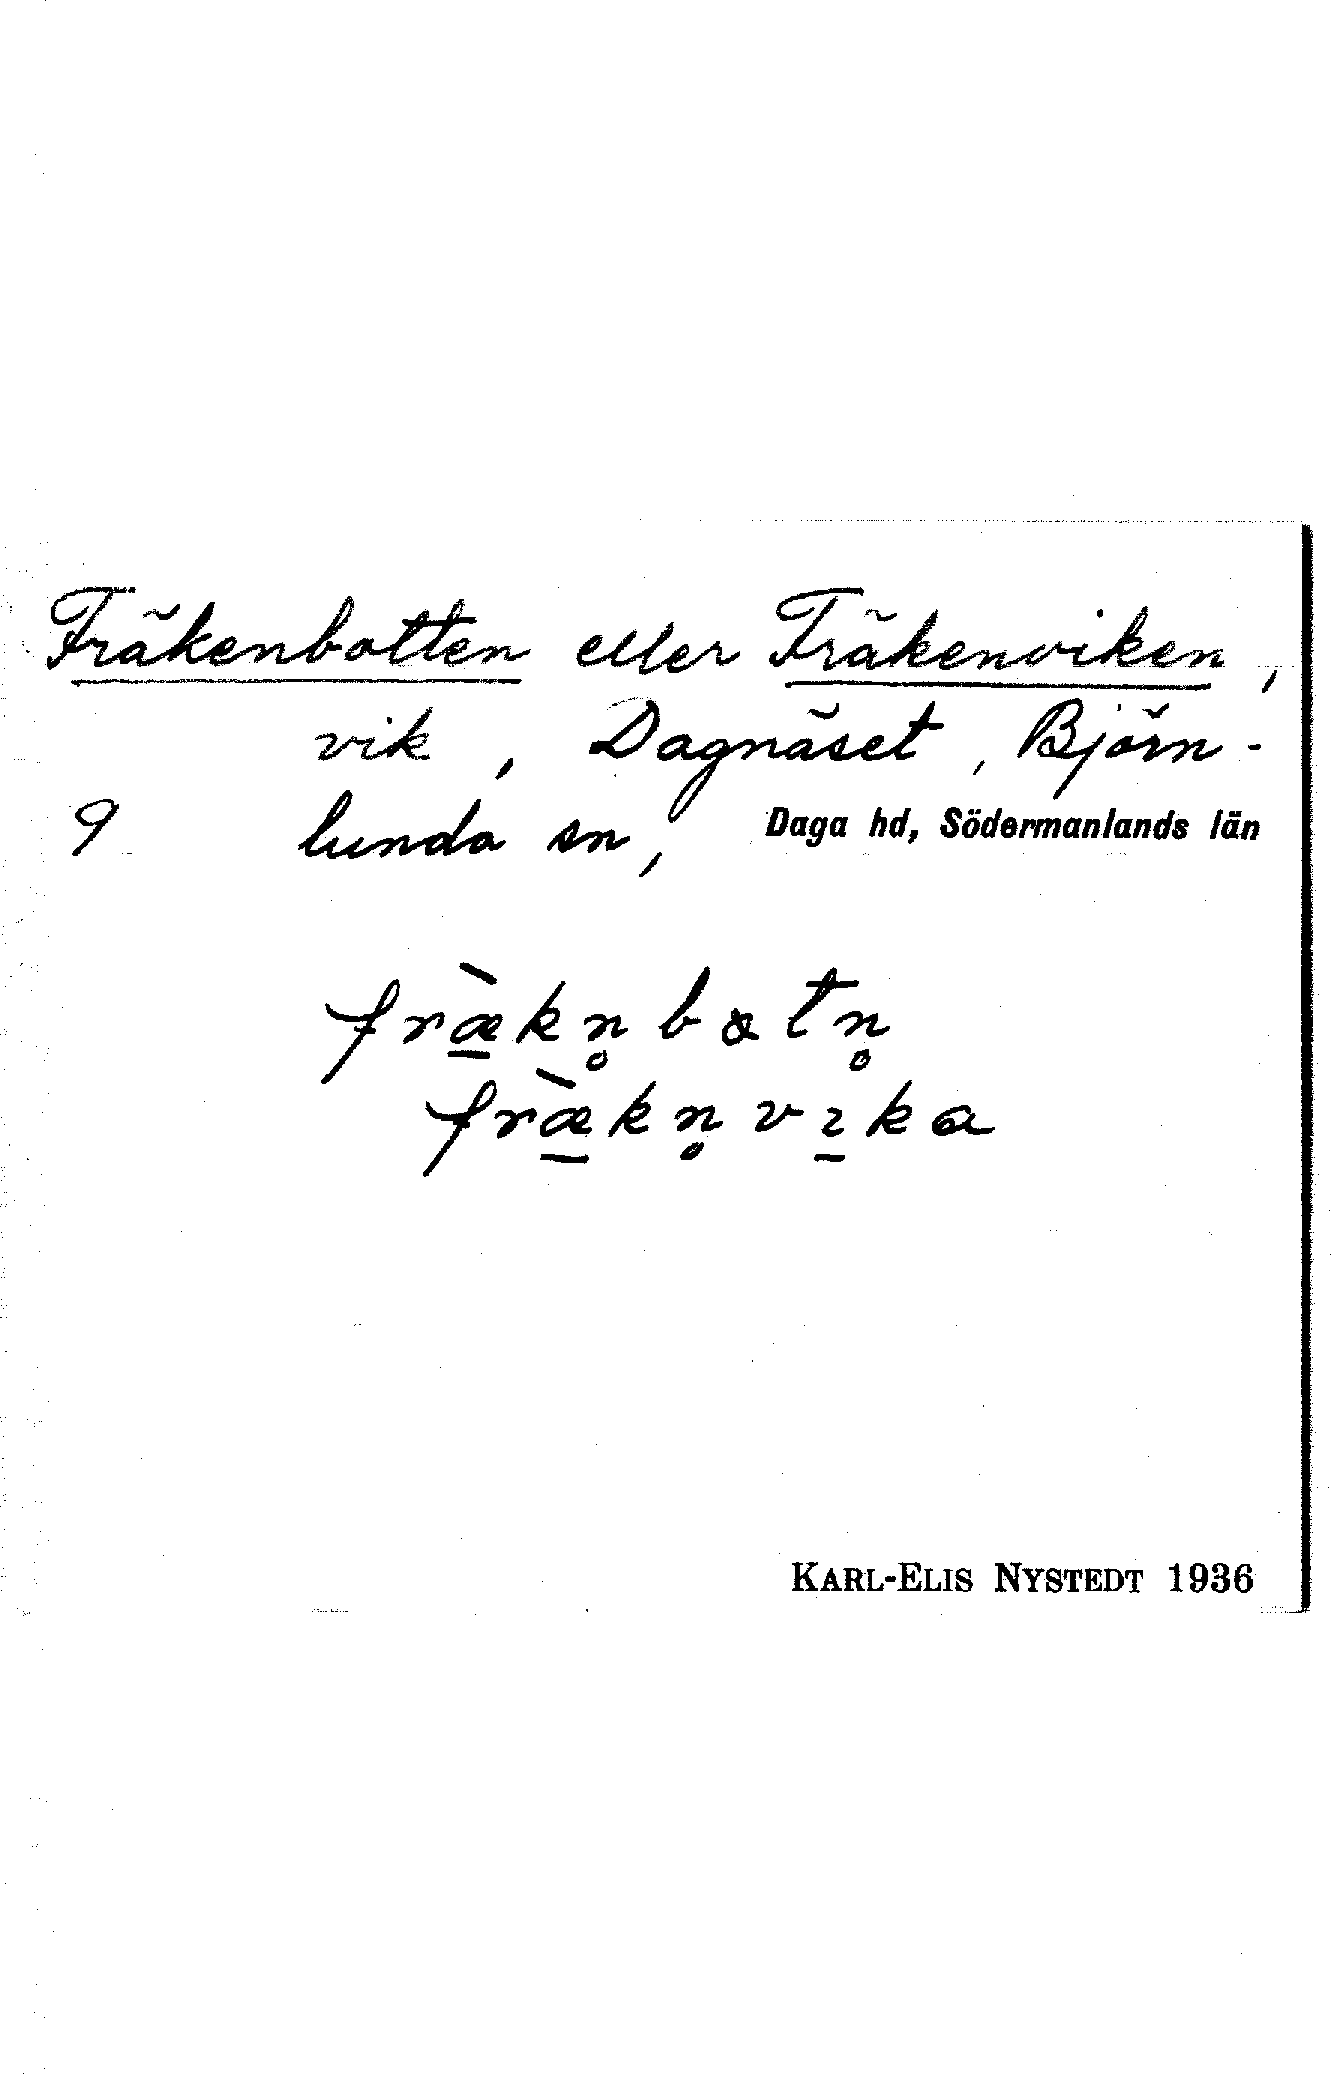 Fräkenbotten eller Fräkenviken,
vik, Dagnäset, Björn-
9 lunda sn, Daga hd, Södermanlands län
fræ̠̀kn̥bɷtn̥
fræ̠̀kn̥vı̠ka
KARL-ELIS NYSTEDT 1936